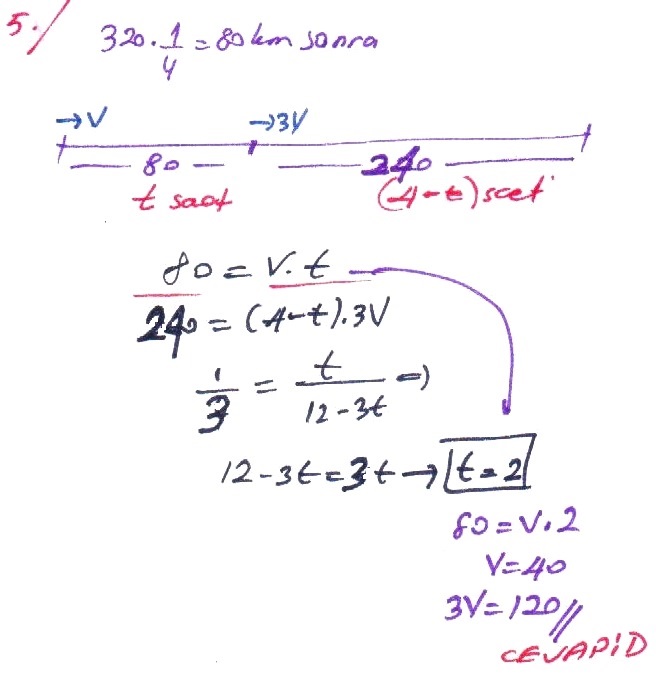 5./
320·1/4 = 80 km sonra
→V →3V
80 240
t saat (4-t) saat
80 = V·t
240 = (4-t)·3V
1/3 = t/(12-3t) ⇒
12-3t = 3t → t=2
80 = V·2
V=40
3V=120//
CEVAP:D